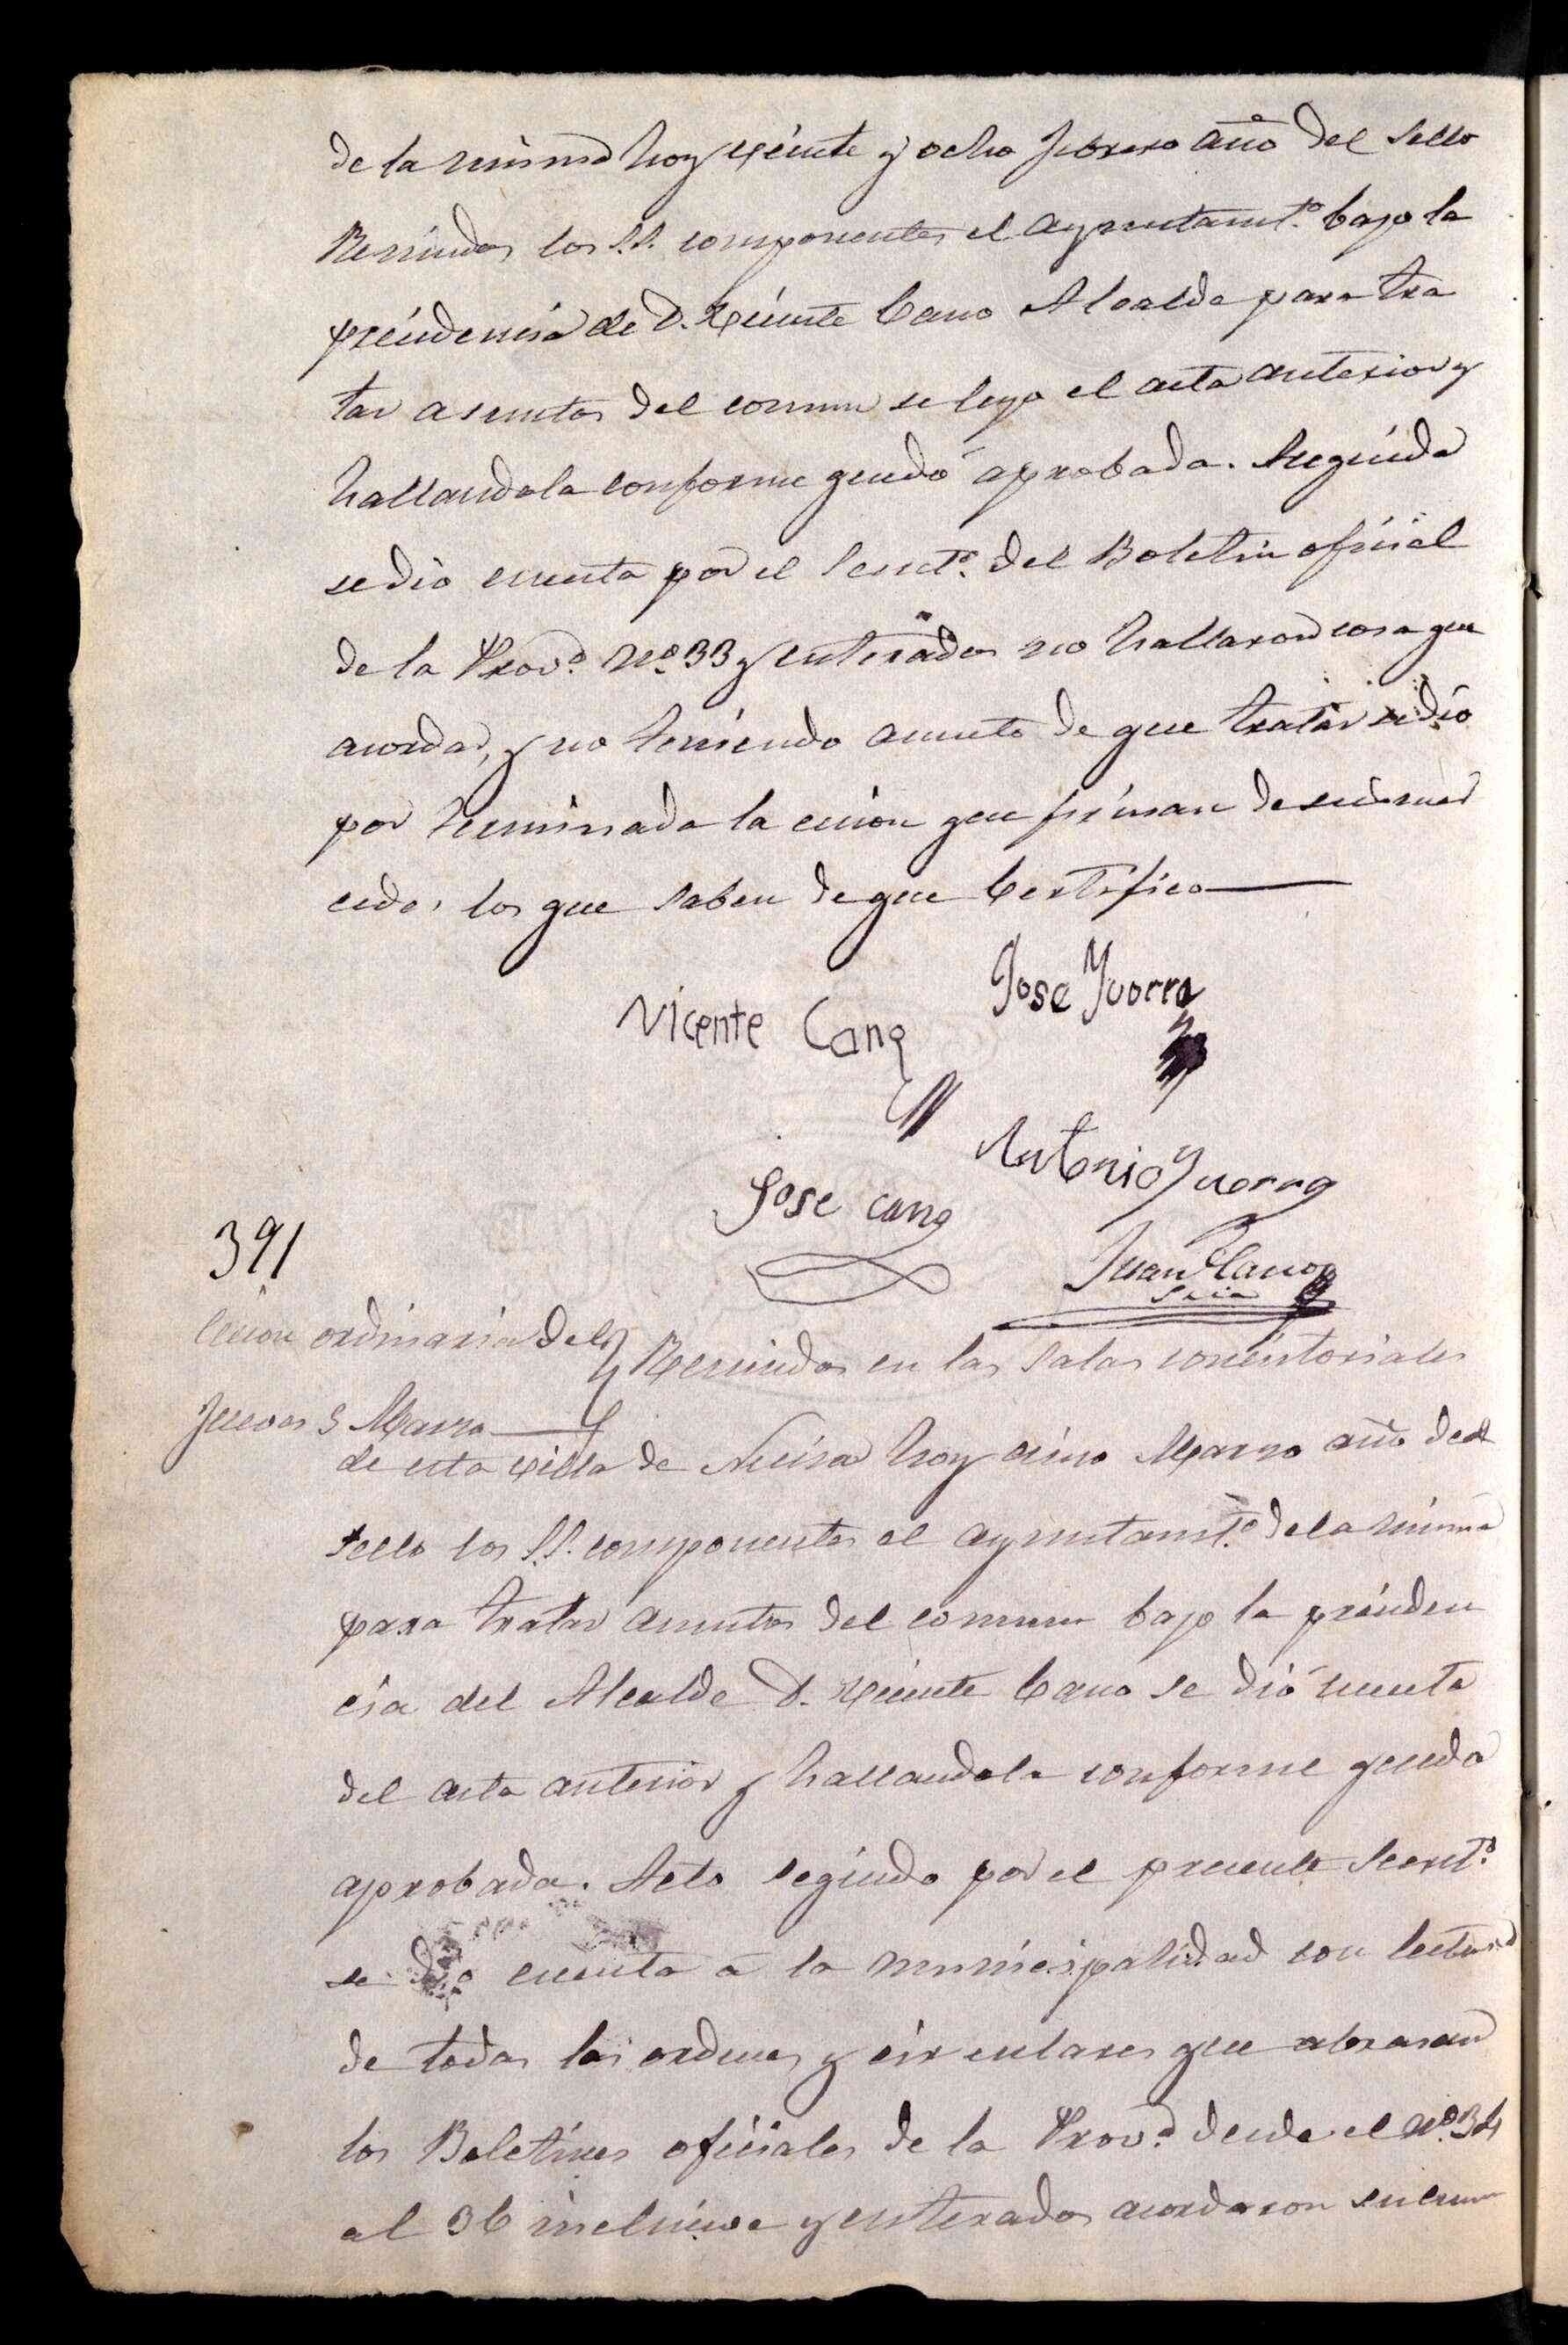 de la misma hoy veinte y ocho febrero año del sello
Reunidos los S.S. componentes el Ayuntamt.º bajo la
precidencia de D. Vicente Cano Alcalde para tra
tar asuntos del comun se leyo el acta anterior y
hallandola conforme quedó aprobada. Seguida
se dio cuenta por el Secret.º del Boletin oficial
de la Prov.ª Nº 33 y enterados no hallaron cosa que
acordar, y no teniendo asunto de que tratar se dio
por terminada la cecion que firman de sus mer
cedes los que saben de que Certifico
Jose Yvorra
Vicente Cano
Antonio Yvorra
Jose cano
391
Juan Cano
Srio
Cecion ordinaria del
Jueves 5 Marzo
Reunidos en las Salas concistoriales
de esta villa de Nucia hoy cinco Marzo año del
sello los S.S. componentes el ayuntamt.º de la misma
para tratar asuntos del comun bajo la preciden
cia del Alcalde D. Vicente Cano se dió cuenta
del acta anterior y hallandola conforme queda
aprobada. Acto seguido por el precente Secret.º
se dio cuenta a la municipalidad con lectura
de todas las ordenes y circulares que abrasan
los Boletines oficiales de la Prov.ª desde el Nº 34
al 36 inclucive y enterados acordaron su cum